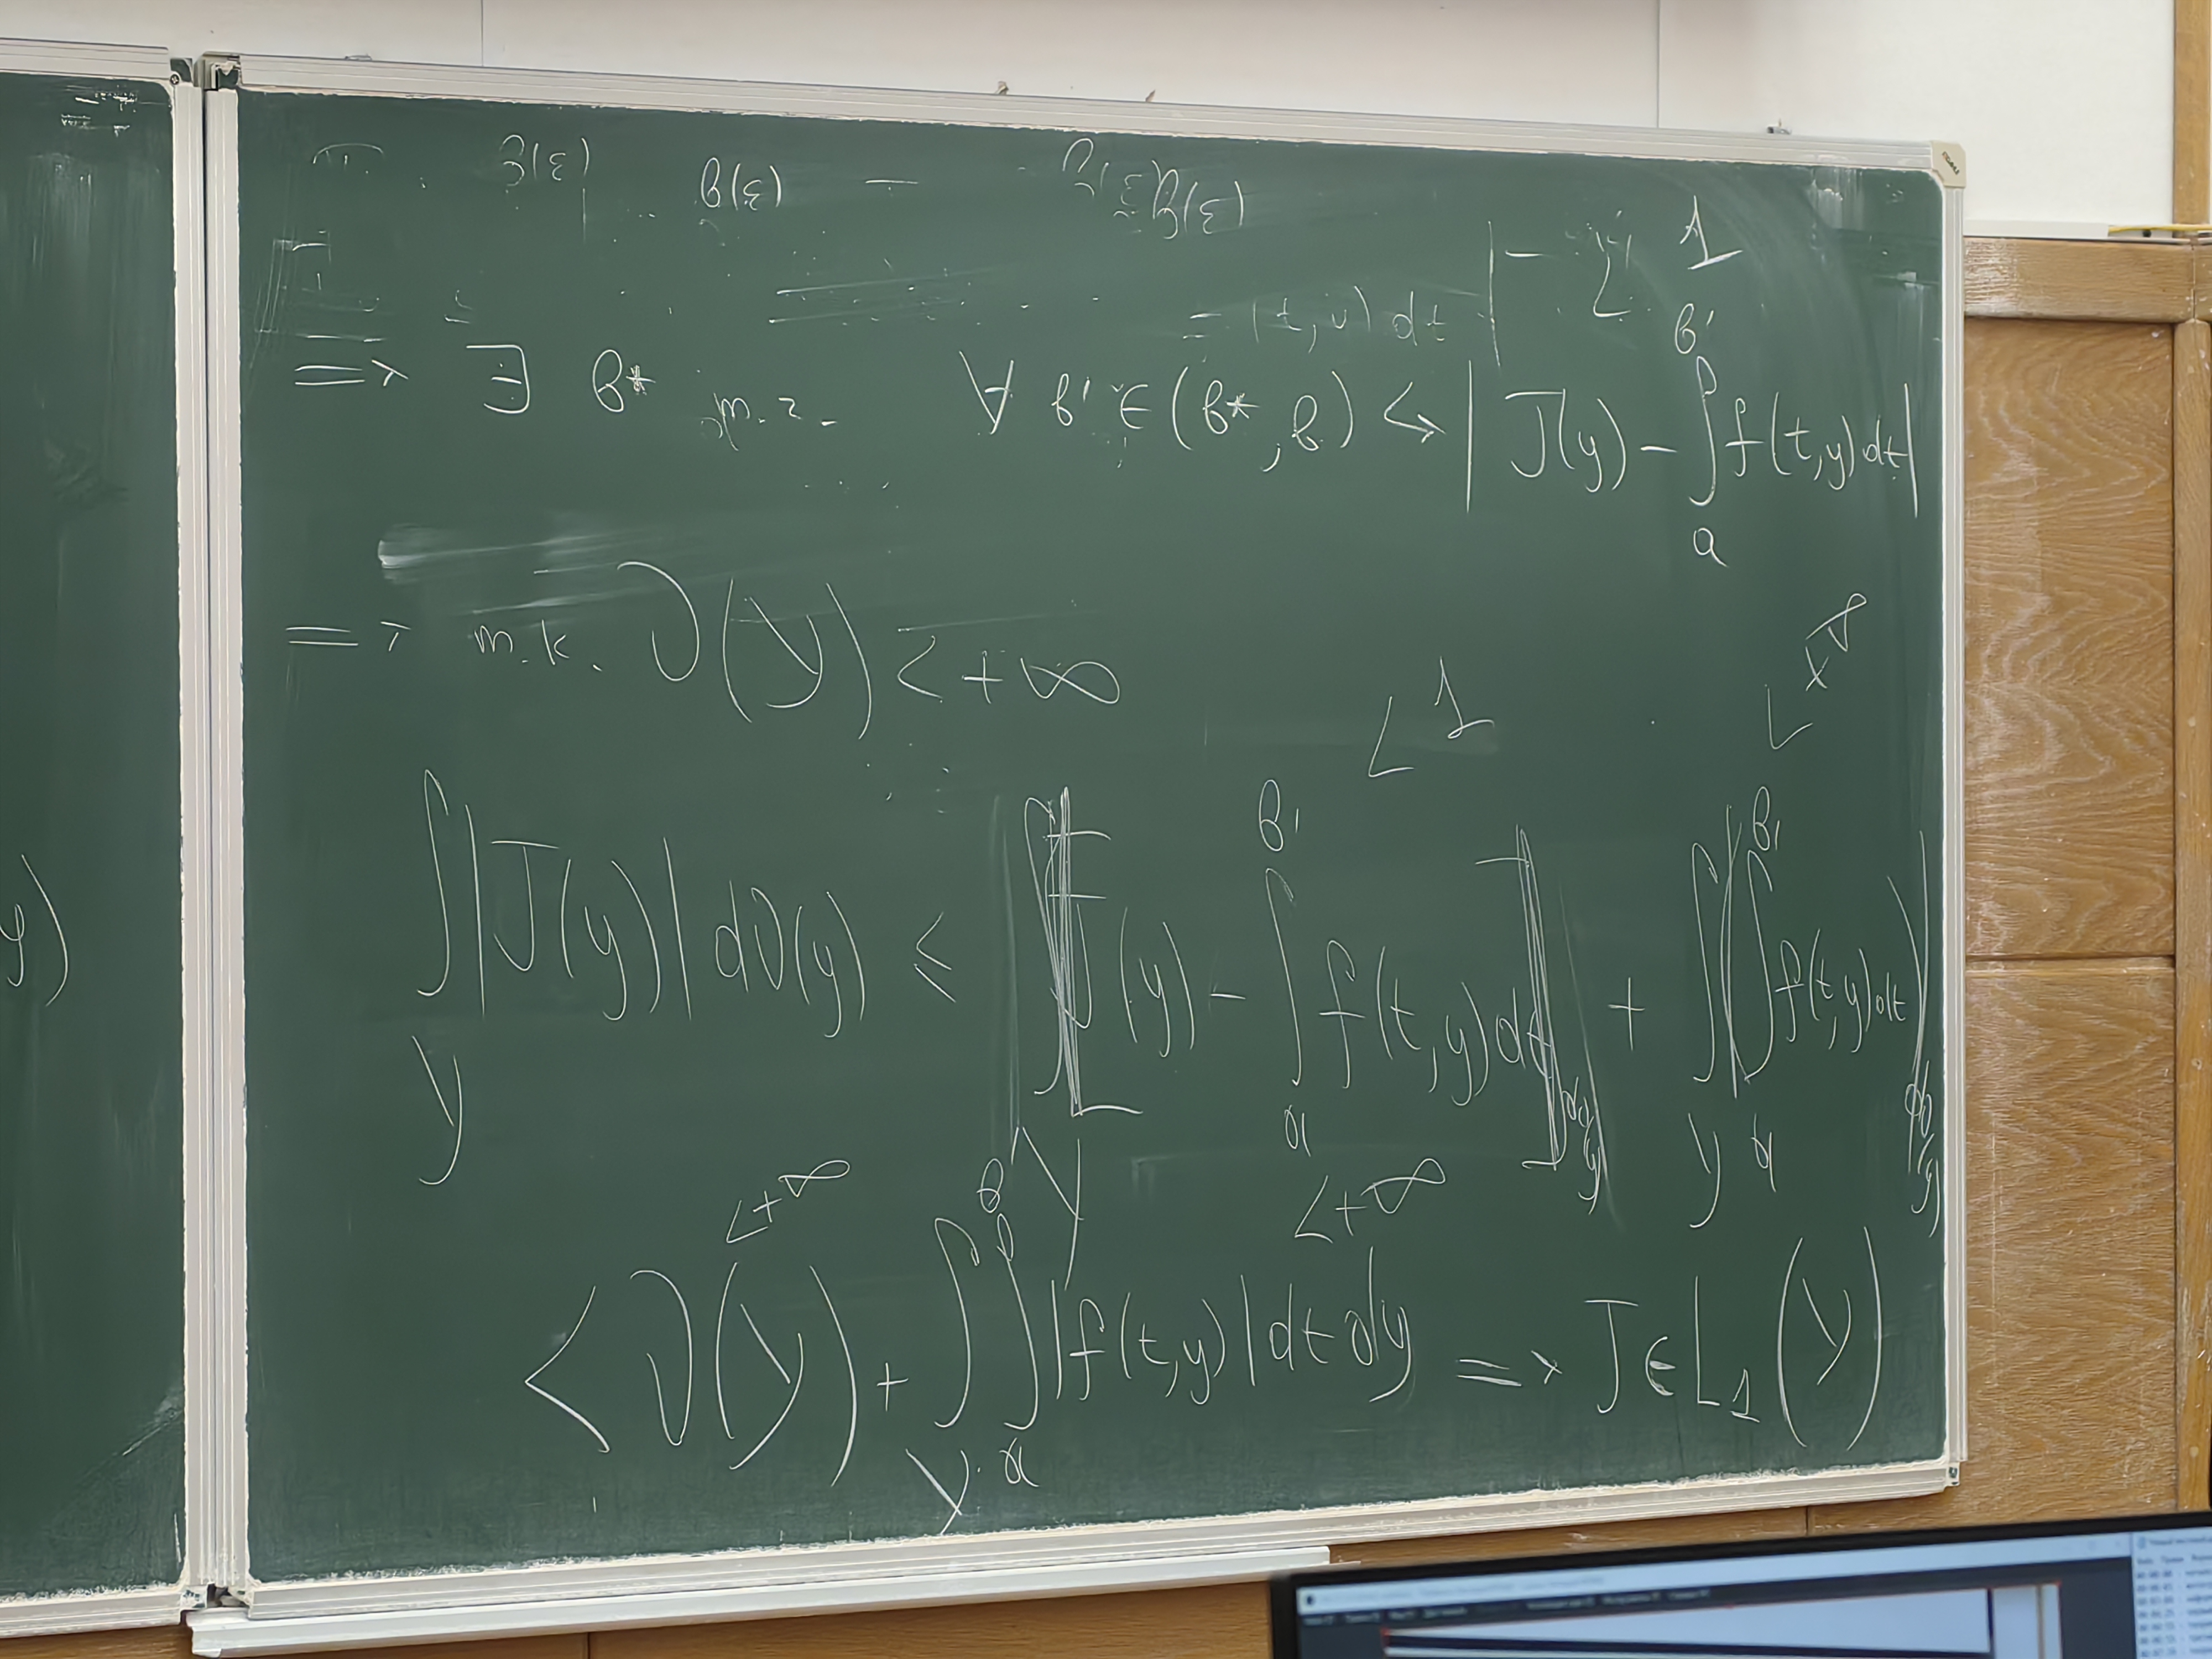 β(ε) β(ε) – β(ε)
= (t, y) dt | – 1
=> ∃ b* т.ч. ∀ b' ∈ (b*, b) ↪ | J(y) – ∫_a^{b'} f(t,y) dt |
=> т.к. ν(Y) < +∞
< 1 < +∞
∫_Y |J(y)| dν(y) ≤ ∫_Y |J(y) – ∫_a^{b'} f(t,y) dt| dν(y) + ∫_Y |∫_a^{b'} f(t,y) dt| dν(y)
< +∞ < +∞
< ν(Y) + ∫_Y ∫_a^{b'} |f(t,y)| dt dy => J ∈ L_1(Y)
y)